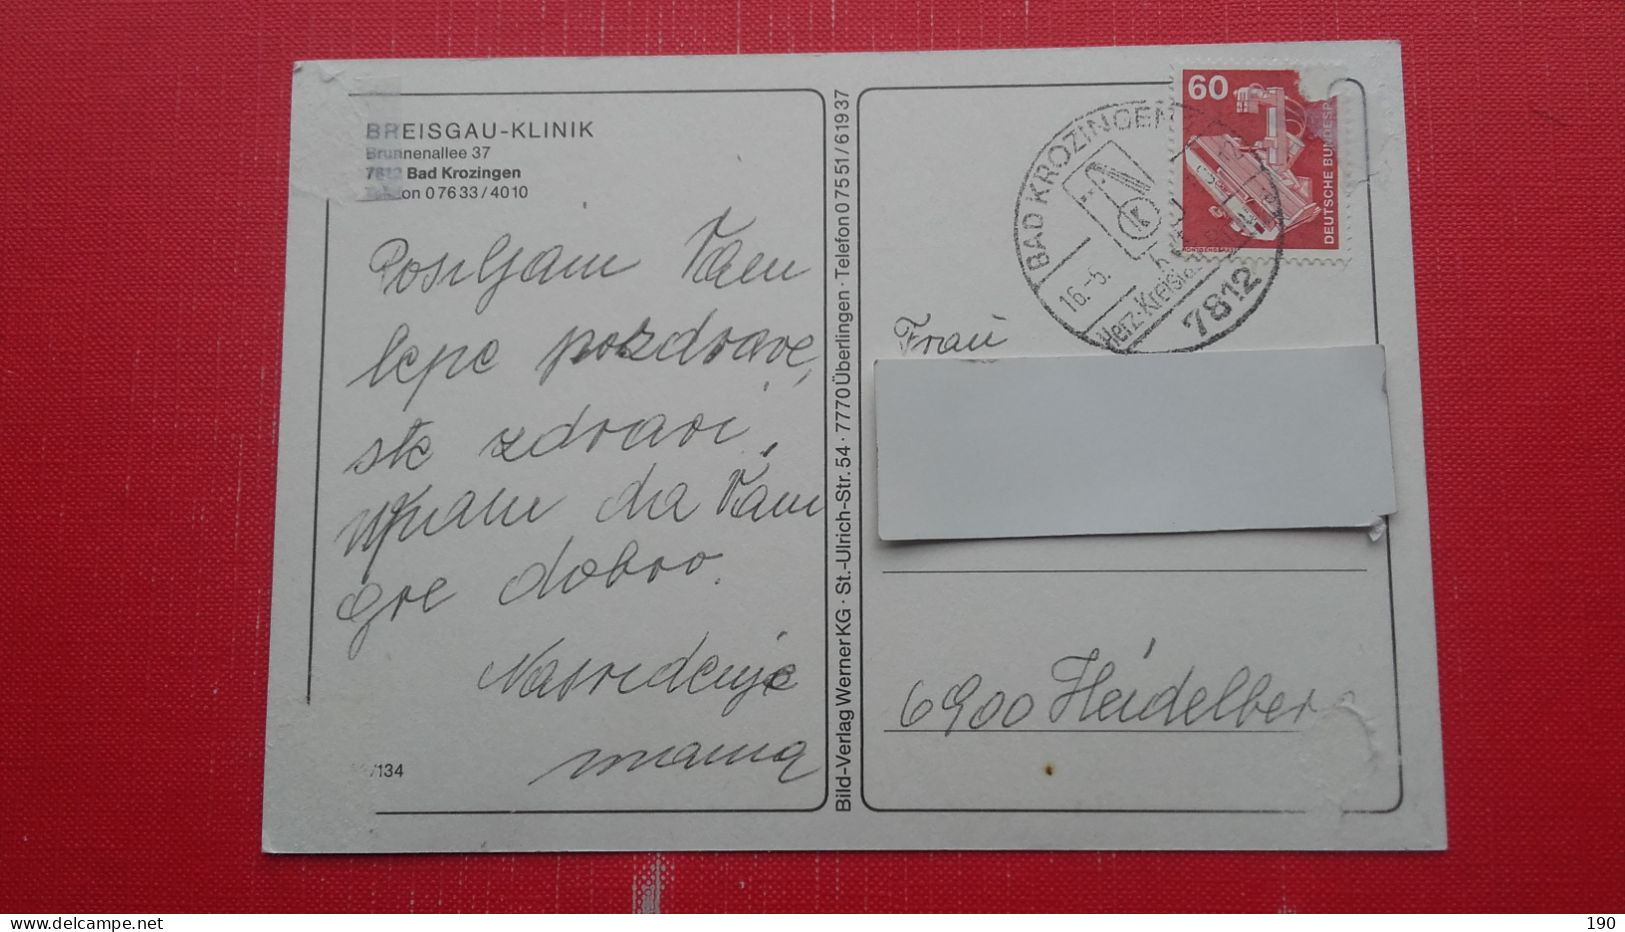 BREISGAU-KLINIK
Brunnenallee 37
7812 Bad Krozingen
Telefon 0 76 33 / 40 10
Posiljam Vam
lepe pozdrave,
ste zdravi,
upam da Vam
gre dobro.
Nasvidenje
mama
/134
Bild-Verlag Werner KG · St.-Ulrich-Str. 54 · 7770 Überlingen · Telefon 0 75 51 / 6 19 37
60
DEUTSCHE BUNDESP
BAD KROZINGEN
16.-5.
Herz-Kreisla
7812
Frau
6900 Heidelber
delcampe.net
190